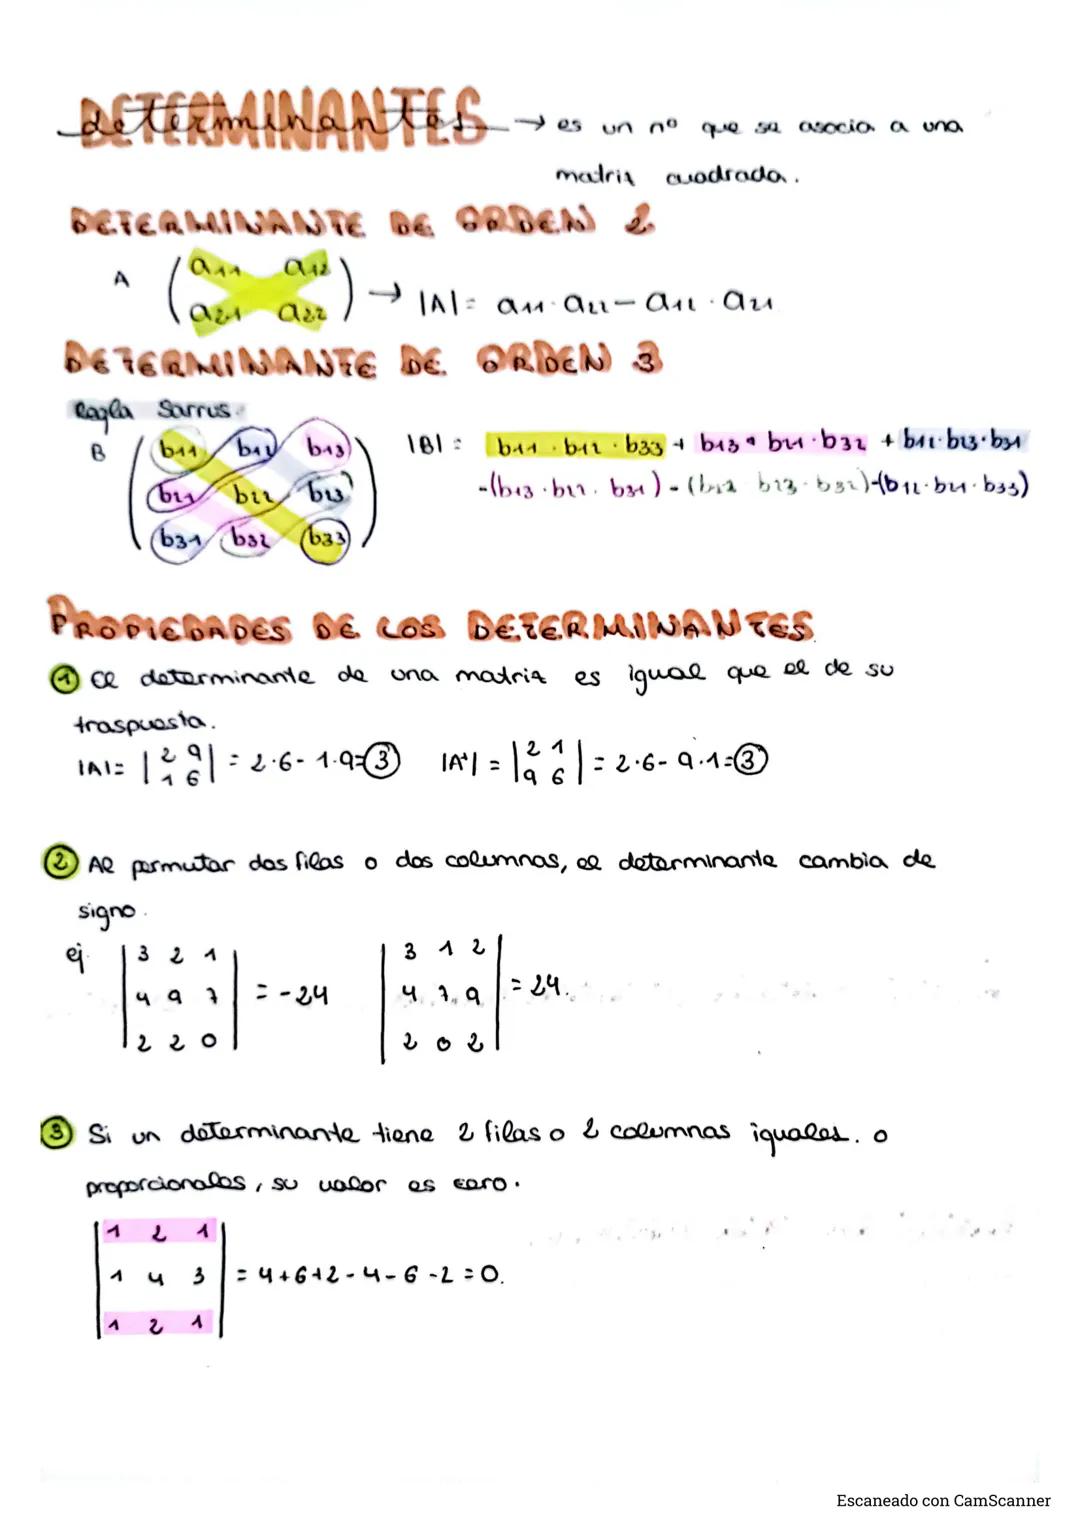 DETERMINANTES
determinantes → es un nº que se asocia a una
matriz cuadrada.
DETERMINANTE DE ORDEN 2
A ( a11 a12
a21 a22 ) → |A| = a11 · a22 − a12 · a21
DETERMINANTE DE ORDEN 3
Regla Sarrus.
B ( b11 b12 b13
b21 b22 b23
b31 b32 b33 )
|B| = b11 · b12 · b33 + b13 · b21 · b32 + b12 · b23 · b31
-(b13 · b22 · b31) - (b12 b23 · b32) - (b12 · b21 · b33)
PROPIEDADES DE LOS DETERMINANTES
① el determinante de una matriz es igual que el de su
traspuesta.
|A| = |2 9
1 6| = 2·6 - 1·9 = 3 |Aᵗ| = |2 1
9 6| = 2·6 - 9·1 = 3
② Al permutar dos filas o dos columnas, el determinante cambia de
signo.
ej. |3 2 1
4 9 7
2 2 0| = -24
|3 1 2
4 7 9
2 0 2| = 24.
③ Si un determinante tiene 2 filas o 2 columnas iguales. o
proporcionales, su valor es cero.
|1 2 1
1 4 3
1 2 1| = 4+6+2-4-6-2=0.
Escaneado con CamScanner